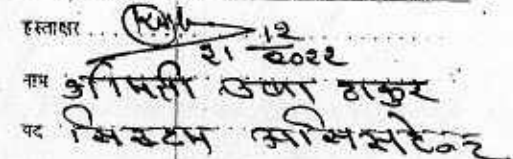 हस्ताक्षर
21 12 2022
नाम श्रीमती उषा ठाकुर
पद सिस्टम असिसटेन्ट